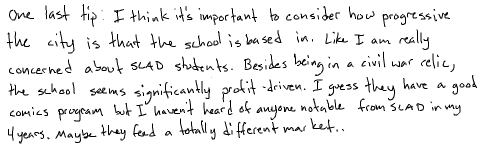 One last tip: I think it's important to consider how progressive
the city is that the school is based in. Like I am really
concerned about SCAD students. Besides being in a civil war relic,
the school seems significantly profit-driven. I guess they have a good
comics program but I haven't heard of anyone notable from SCAD in my
4 years. Maybe they feed a totally different market..